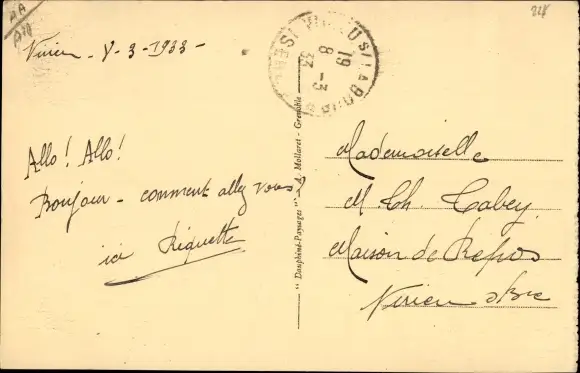 Virieu - 8-3-1933-
Allo! Allo!
Bonjour - comment allez vous
ici Riquette
"Dauphiné-Paysages" - A. Mollaret - Grenoble
VIRIEU S/LA BOURBRE
19
8 -3
33
Mademoiselle
M Th. Cabey
Maison de Repos
Virieu s/Bre